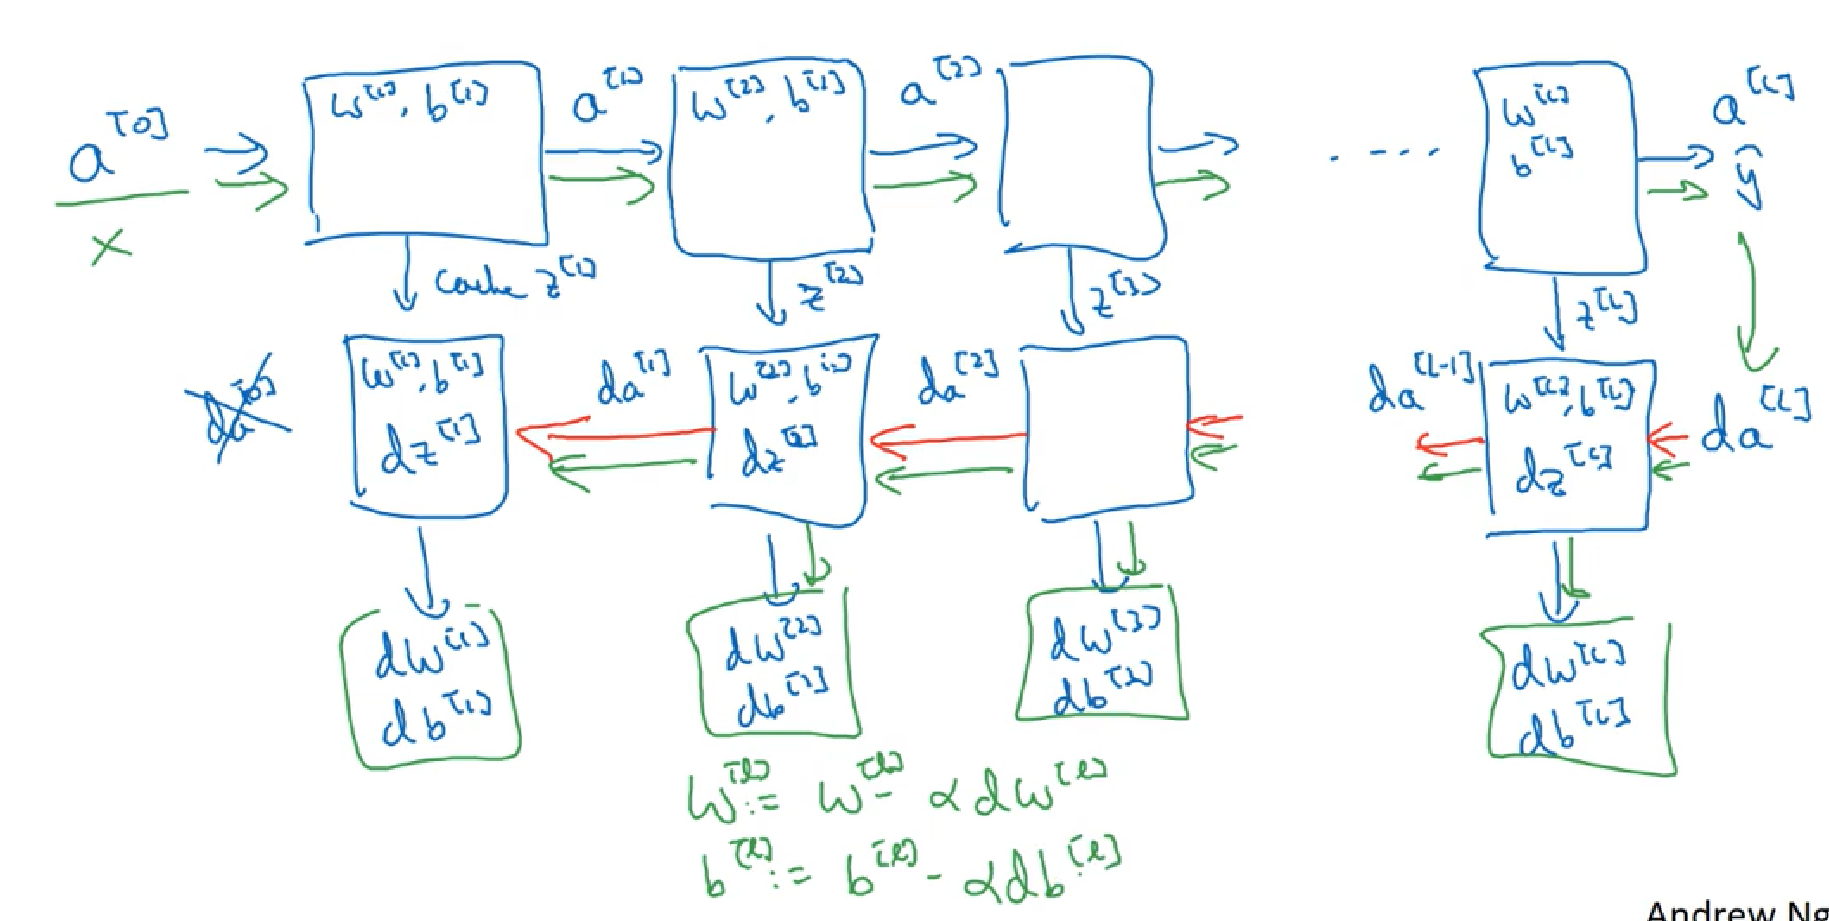 a^[0]
x
w^[1], b^[1]
a^[1]
w^[2], b^[1]
a^[2]
w^[L]
b^[L]
a^[L]
ŷ
cache z^[1]
z^[2]
z^[3]
z^[L]
da^[0]
w^[1], b^[1]
dz^[1]
da^[1]
w^[2], b^[1]
dz^[2]
da^[2]
da^[L-1]
w^[L], b^[L]
dz^[L]
da^[L]
dw^[1]
db^[1]
dw^[2]
db^[2]
dw^[3]
db^[3]
dw^[L]
db^[L]
w^[l] := w^[l] - αdw^[l]
b^[l] := b^[l] - αdb^[l]
Andrew Ng